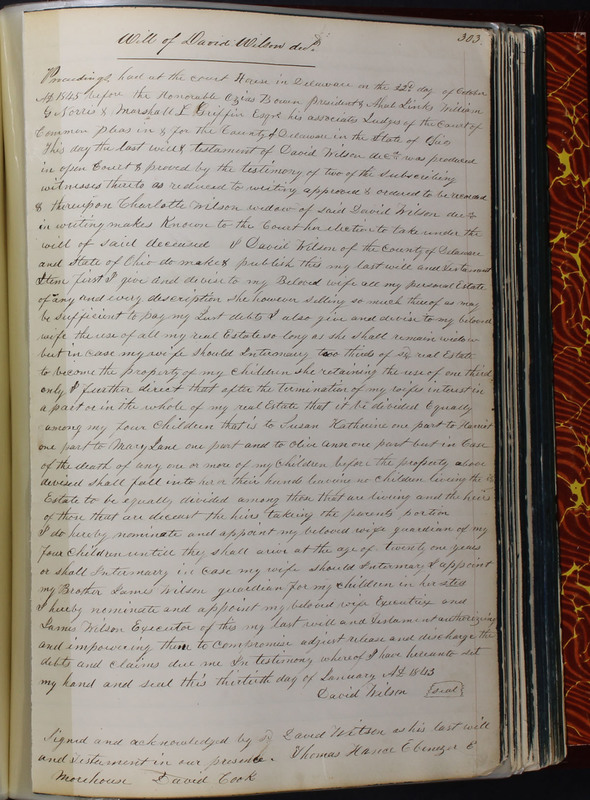 303
Will of David Wilson decd
Proceedings had at the court House in Delaware on the 22d day of October
AD 1845 before the Honorable Ozias Bowen president & Ahab Jinks William
G Norris & Marshall L Griffin Esqrs his associates Judges of the Court of
Common pleas in & for the County of Delaware in the State of Ohio
This day the last will & testament of David Wilson decd was produced
in open Court & proved by the testimony of two of the Subscribing
witnesses thereto as reduced to writing approved & ordered to be recorded
& thereupon Charlotte Wilson widow of said David Wilson decd
in writing makes Known to the Court her election to take under the
will of said deceased I David Wilson of the County of Delaware
and State of Ohio do make & publish this my last will and Testament
Item first I give and devise to my Beloved wife all my personal Estate
of any and every description she however selling so much thereof as may
be sufficient to pay my Just debts I also give and devise to my beloved
wife the use of all my real Estate so long as she shall remain widow
but in case my wife should Intermary two thirds of sd real Estate
to become the property of my children she retaining the use of one third
only I further direct that after the termination of my wifes interest in
a part or in the whole of my real Estate that it be divided Equally
among my four Children that is to Susan Katherine one part to Harriet
one part to Mary Jane one part and to Oliv Ann one part but in Case
of the death of any one or more of my Children before the property above
devised shall fall into her or their hands leaving no children living the
Estate to be equally divided among those that are living and the heirs
of those that are deceast the heirs taking the parents portion
I do hereby nominate and appoint my beloved wife guardian of my
four Children untill they shall arive at the age of twenty one years
or shall Intermarry in case my wife should Intermary I appoint
my Brother James Wilson guardian for my children in her sted
I hereby nominate and appoint my beloved wife Executrix and
James Wilson Executor of this my last will and Testament authorizing
and impowering them to compromise adjust release and discharge the
debts and claims due me In testimony whereof I have hereunto set
my hand and seal this thirtieth day of January AD 1843
David Wilson {seal}
Signed and acknowledged by sd David Wilson as his last will
and Testament in our presence. Thomas Hance Ebenezer C
Morehouse David Cook